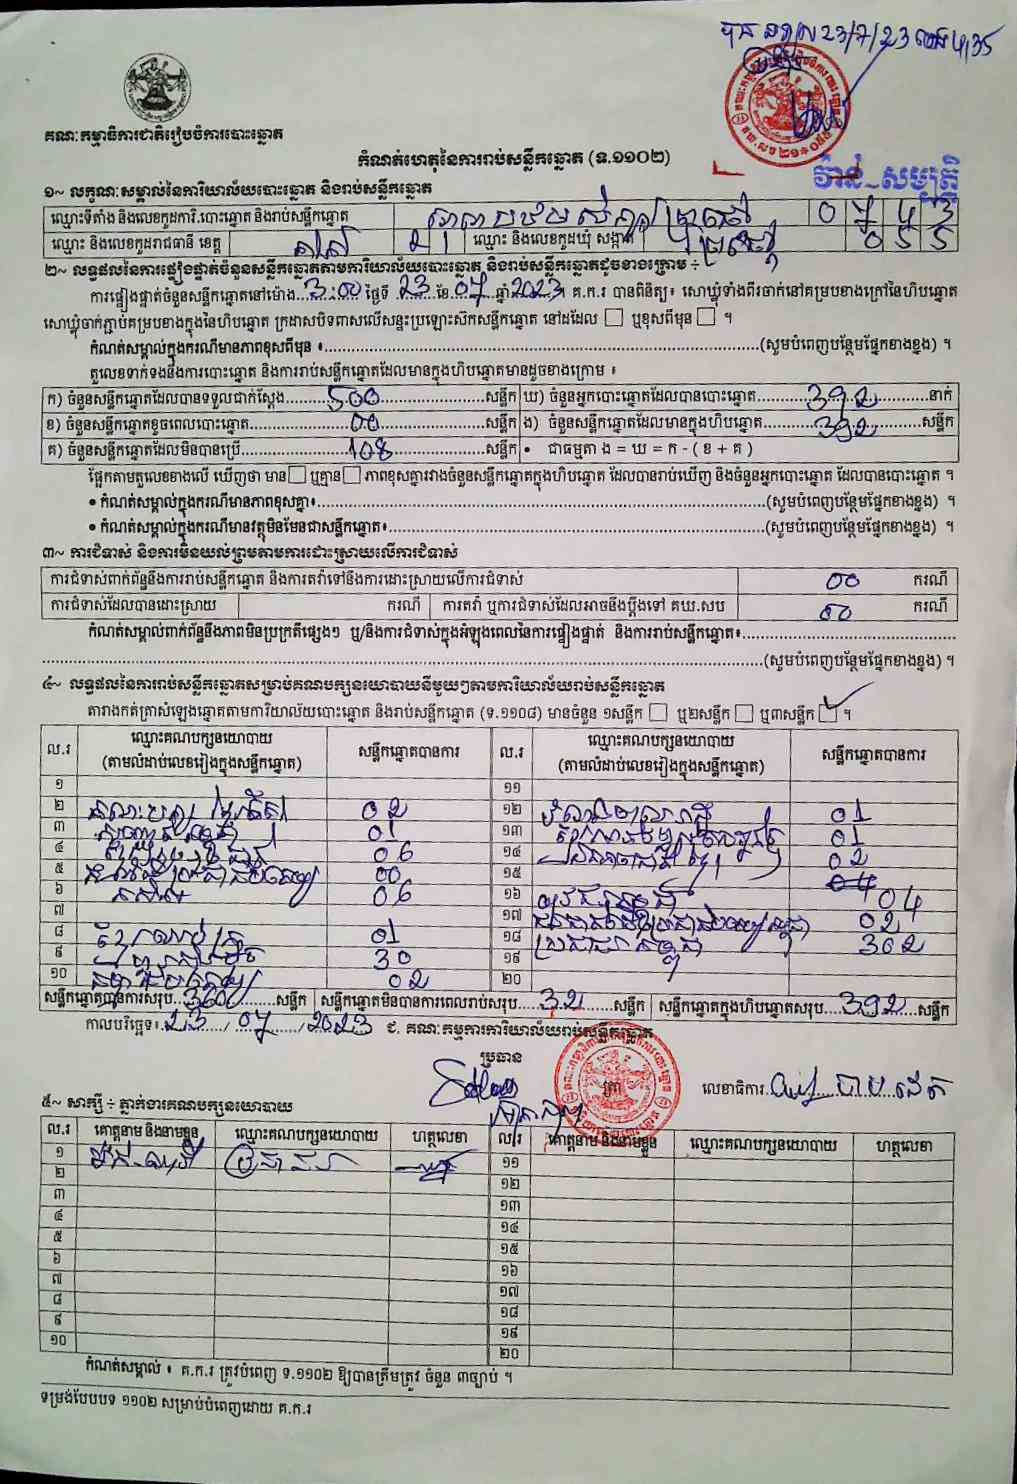 បាន ទទួល 23/7/23 ម៉ោង 4,35
គណៈកម្មាធិការជាតិរៀបចំការបោះឆ្នោត
កំណត់ហេតុនៃការរាប់សន្លឹកឆ្នោត (ទ.១១០២)
វ៉ាន់-សម្បត្តិ
១~ លក្ខណៈសម្គាល់នៃការិយាល័យបោះឆ្នោត និងរាប់សន្លឹកឆ្នោត
ឈ្មោះទីតាំង និងលេខកូដការិ.បោះឆ្នោត និងរាប់សន្លឹកឆ្នោត 0 7 4 3
ឈ្មោះ និងលេខកូដរាជធានី ខេត្ត 21 ឈ្មោះ និងលេខកូដឃុំ សង្កាត់ 0 5 5
២~ លទ្ធផលនៃការផ្ទៀងផ្ទាត់ចំនួនសន្លឹកឆ្នោតតាមការិយាល័យបោះឆ្នោត និងរាប់សន្លឹកឆ្នោតដូចខាងក្រោម ÷
ការផ្ទៀងផ្ទាត់ចំនួនសន្លឹកឆ្នោតនៅម៉ោង...3:00 ថ្ងៃទី 23 ខែ 07 ឆ្នាំ 2023។ គ.ក.រ បានពិនិត្យ៖ សោឃ្លុំទាំងពីរចាក់នៅគម្របខាងក្រៅនៃហិបឆ្នោត
សោឃ្លុំចាក់ភ្ជាប់គម្របខាងក្នុងនៃហិបឆ្នោត ក្រដាសបិទពាសលើសន្ទះប្រឡោះស៊កសន្លឹកឆ្នោត នៅដដែល ☐ ឬខុសពីមុន ☐ ។
កំណត់សម្គាល់ក្នុងករណីមានភាពខុសពីមុន ៖...(សូមបំពេញបន្ថែមផ្នែកខាងខ្នង) ។
តួលេខទាក់ទងនឹងការបោះឆ្នោត និងការរាប់សន្លឹកឆ្នោតដែលមានក្នុងហិបឆ្នោតមានដូចខាងក្រោម ៖
ក) ចំនួនសន្លឹកឆ្នោតដែលបានទទួលជាក់ស្តែង...500...សន្លឹក ឃ) ចំនួនអ្នកបោះឆ្នោតដែលបានបោះឆ្នោត...392...នាក់
ខ) ចំនួនសន្លឹកឆ្នោតខូចពេលបោះឆ្នោត...00...សន្លឹក ង) ចំនួនសន្លឹកឆ្នោតដែលមានក្នុងហិបឆ្នោត...392...សន្លឹក
គ) ចំនួនសន្លឹកឆ្នោតដែលមិនបានប្រើ...108...សន្លឹក • ជាធម្មតា ង = ឃ = ក - ( ខ + គ )
ផ្អែកតាមតួលេខខាងលើ ឃើញថា មាន ☐ ឬគ្មាន ☐ ភាពខុសគ្នារវាងចំនួនសន្លឹកឆ្នោតក្នុងហិបឆ្នោត ដែលបានរាប់ឃើញ និងចំនួនអ្នកបោះឆ្នោត ដែលបានបោះឆ្នោត ។
• កំណត់សម្គាល់ក្នុងករណីមានភាពខុសគ្នា៖...(សូមបំពេញបន្ថែមផ្នែកខាងខ្នង) ។
• កំណត់សម្គាល់ក្នុងករណីមានវត្ថុមិនមែនជាសន្លឹកឆ្នោត៖...(សូមបំពេញបន្ថែមផ្នែកខាងខ្នង) ។
៣~ ការជំទាស់ និងការមិនយល់ព្រមតាមការដោះស្រាយលើការជំទាស់
ការជំទាស់ពាក់ព័ន្ធនឹងការរាប់សន្លឹកឆ្នោត និងការតវ៉ាទៅនឹងការដោះស្រាយលើការជំទាស់ 00 ករណី
ការជំទាស់ដែលបានដោះស្រាយ ករណី ការតវ៉ា ឬការជំទាស់ដែលអាចនឹងប្តឹងទៅ គឃ.សប 00 ករណី
កំណត់សម្គាល់ពាក់ព័ន្ធនឹងភាពមិនប្រក្រតីផ្សេងៗ ឬ/និងការជំទាស់ក្នុងអំឡុងពេលនៃការផ្ទៀងផ្ទាត់ និងការរាប់សន្លឹកឆ្នោត៖...
...(សូមបំពេញបន្ថែមផ្នែកខាងខ្នង) ។
៤~ លទ្ធផលនៃការរាប់សន្លឹកឆ្នោតសម្រាប់គណបក្សនយោបាយនីមួយៗតាមការិយាល័យរាប់សន្លឹកឆ្នោត
តារាងកត់ត្រាសំឡេងឆ្នោតតាមការិយាល័យបោះឆ្នោត និងរាប់សន្លឹកឆ្នោត (ទ.១១០៨) មានចំនួន ១សន្លឹក ☐ ឬ២សន្លឹក ☐ ឬ៣សន្លឹក ☑ ។
ល.រ ឈ្មោះគណបក្សនយោបាយ (តាមលំដាប់លេខរៀងក្នុងសន្លឹកឆ្នោត) សន្លឹកឆ្នោតបានការ ល.រ ឈ្មោះគណបក្សនយោបាយ (តាមលំដាប់លេខរៀងក្នុងសន្លឹកឆ្នោត) សន្លឹកឆ្នោតបានការ
១ ១១
២ 02 ១២ 01
៣ 01 ១៣ 01
៤ 06 ១៤ 02
៥ 00 ១៥ 04
៦ 06 ១៦ 04
៧ ១៧ 02
៨ 01 ១៨ 302
៩ 30 ១៩
១០ 02 ២០
សន្លឹកឆ្នោតបានការសរុប..360...សន្លឹក សន្លឹកឆ្នោតមិនបានការពេលរាប់សរុប...32...សន្លឹក សន្លឹកឆ្នោតក្នុងហិបឆ្នោតសរុប...392...សន្លឹក
កាលបរិច្ឆេទ៖ 23/07/2023 ជ. គណៈកម្មការការិយាល័យរាប់សន្លឹកឆ្នោត
ប្រធាន
ត្រា លេខាធិការ
៥~ សាក្សី ÷ ភ្នាក់ងារគណបក្សនយោបាយ
ល.រ គោត្តនាម និងនាមខ្លួន ឈ្មោះគណបក្សនយោបាយ ហត្ថលេខា ល.រ គោត្តនាម និងនាមខ្លួន ឈ្មោះគណបក្សនយោបាយ ហត្ថលេខា
១ ១១
២ ១២
៣ ១៣
៤ ១៤
៥ ១៥
៦ ១៦
៧ ១៧
៨ ១៨
៩ ១៩
១០ ២០
កំណត់សម្គាល់ ៖ គ.ក.រ ត្រូវបំពេញ ទ.១១០២ ឱ្យបានត្រឹមត្រូវ ចំនួន ៣ច្បាប់ ។
ទម្រង់បែបបទ ១១០២ សម្រាប់បំពេញដោយ គ.ក.រ